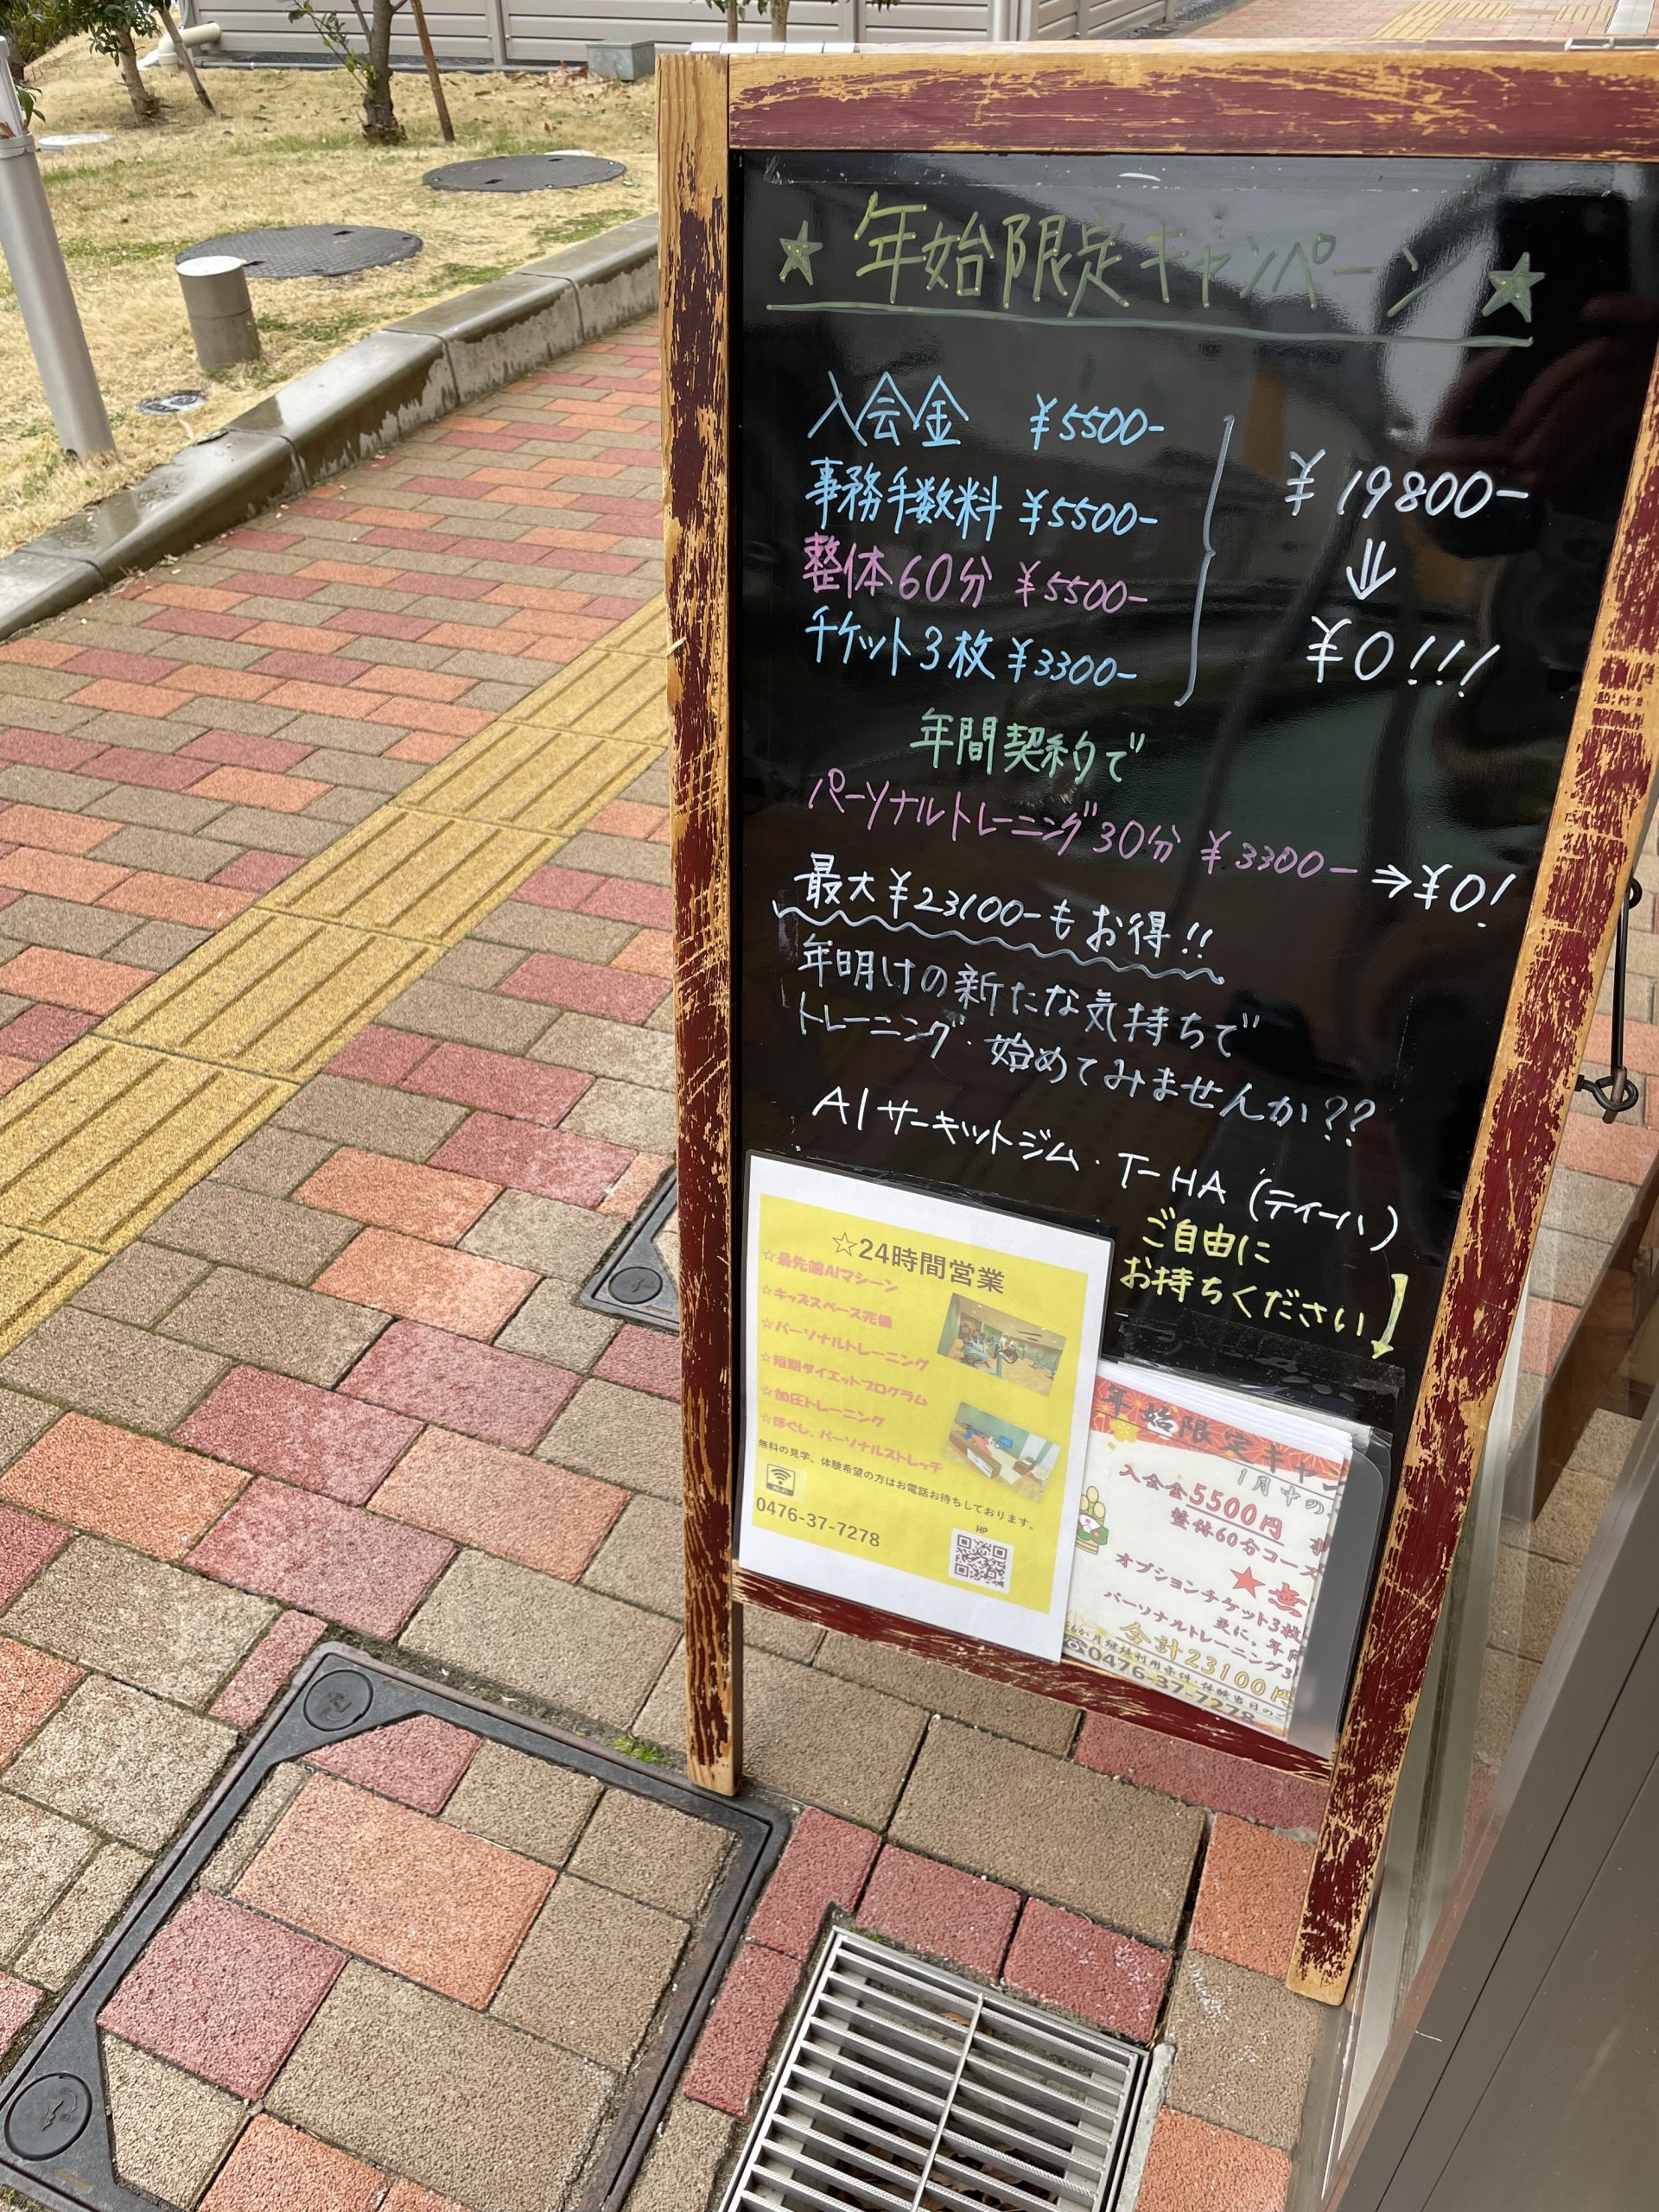 ☆ 年始限定キャンペーン ☆
入会金 ¥5500-
事務手数料 ¥5500-
整体60分 ¥5500-
チケット3枚 ¥3300-
¥19800-
⇓
¥0!!!
年間契約で
パーソナルトレーニング30分 ¥3300- ⇒¥0!
最大¥23100-もお得!!
年明けの新たな気持ちで
トレーニング・始めてみませんか??
AIサーキットジム・T-HA(ティーハ)
ご自由に
お持ちください
☆24時間営業
☆最先端AIマシーン
☆キッズスペース完備
☆パーソナルトレーニング
☆短期ダイエットプログラム
☆加圧トレーニング
☆ほぐし、パーソナルストレッチ
無料の見学、体験希望の方はお電話お待ちしております。
Wi-Fi
0476-37-7278
HP
年始限定キャン
1月中の
入会金5500円
整体60分コース
★無
オプションチケット3枚
更に、年
パーソナルトレーニング3
合計23100円
6か月継続利用条件・体験当日のご
0476-37-7278